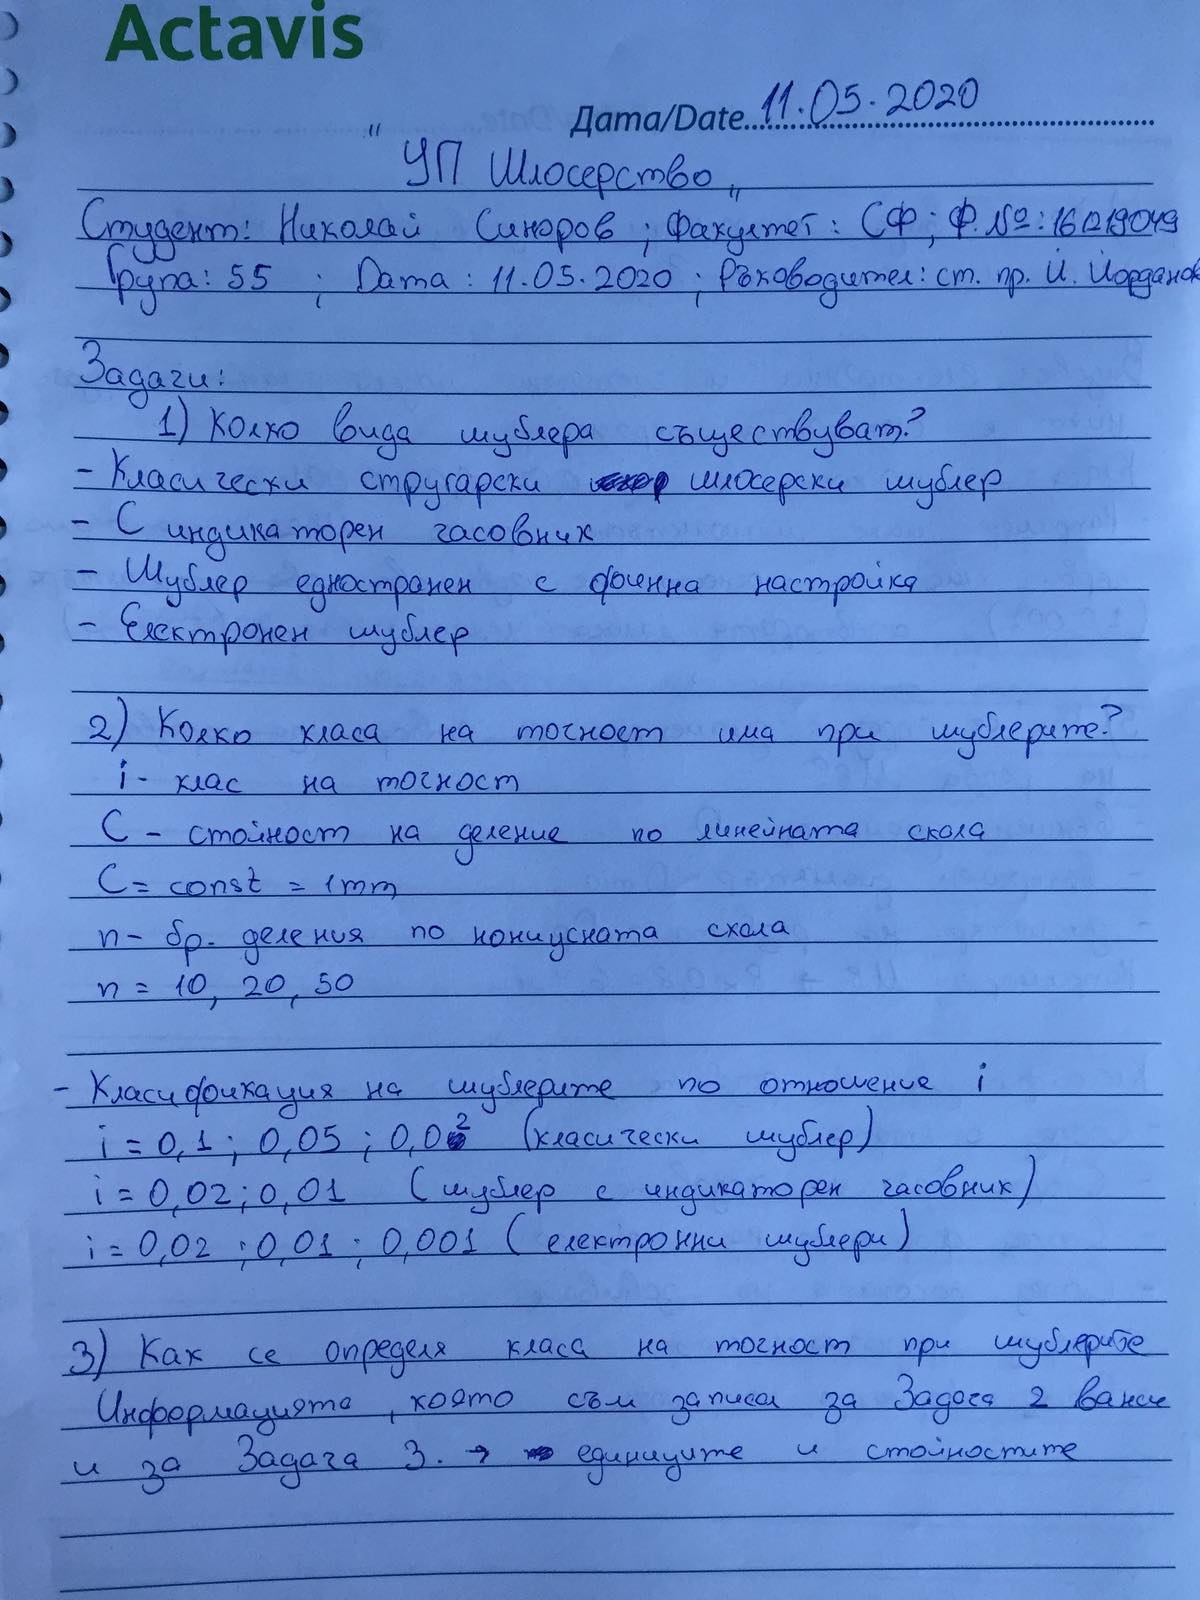 Actavis
Дата/Date 11.05.2020
" УП Шлосерство "
Студент: Николай Синоров ; Факултет: СФ ; Ф.№: 161219049
Група: 55 ; Дата: 11.05.2020 ; Ръководител: ст. пр. Й. Йорданов
Задачи:
1) Колко вида шублера съществуват?
- Класически стругарски шлосерски шублер
- С индикаторен часовник
- Шублер едностранен с финна настройка
- Електронен шублер
2) Колко класа на точност има при шублерите?
i - клас на точност
C - стойност на деление по линейната скала
C = const = 1mm
n - бр. деления по нониусната скала
n = 10, 20, 50
- Класификация на шублерите по отношение i
i = 0,1 ; 0,05 ; 0,02 (класически шублер)
i = 0,02 ; 0,01 (шублер с индикаторен часовник)
i = 0,02 ; 0,01 ; 0,001 (електронни шублери)
3) Как се определя класа на точност при шублерите
Информацията, която съм записал за Задача 2 важи
и за Задача 3. → единиците и стойностите